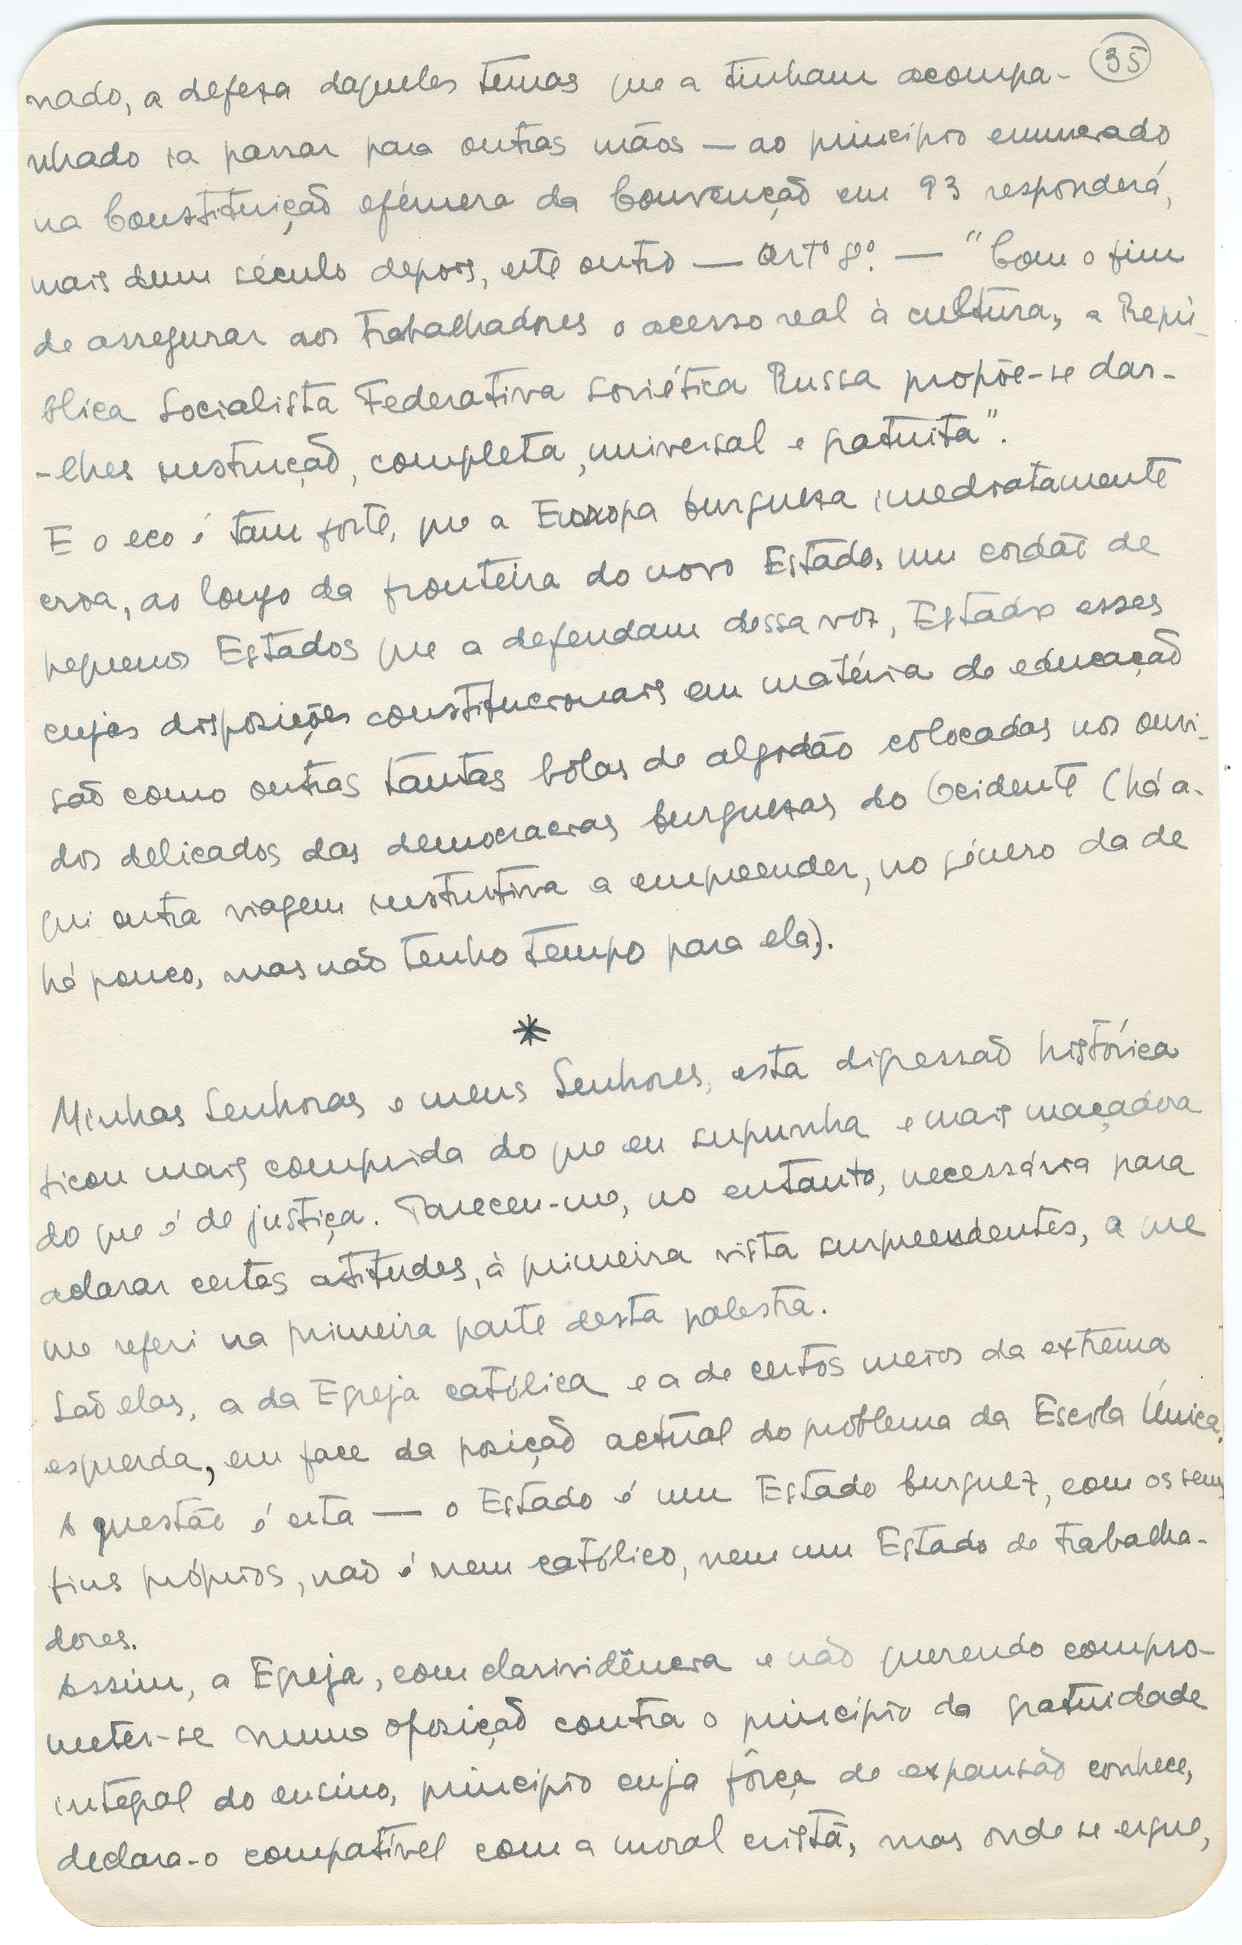 35
nado, a defeza daqueles temas que a tinham acompa-
nhado ia passar para outras mãos — ao princípio enumerado
na Constituição efémera da Convenção em 93 responderá,
mais dum século depois, este outro — Artº 8º. — "Com o fim
de assegurar aos trabalhadores o acesso real à cultura, a Repú-
blica Socialista Federativa Soviética Russa propõe-se dar-
-lhes instrução, completa, universal e gratuita".
E o eco é tam forte, que a Europa burgueza imediatamente
croa, ao longo da fronteira do novo Estado, um cordão de
pequenos Estados que a defendam dessa voz, Estados esses
cujas disposições constitucionais em matéria de educação
são como outras tantas bolas de algodão colocadas nos ouvi-
dos delicados das democracias burguezas do Ocidente (há a-
qui outra viagem instrutiva a empreender, no género da de
há pouco, mas não tenho tempo para ela).
*
Minhas Senhoras e meus Senhores, esta digressão histórica
ficou mais comprida do que eu supunha e mais maçadora
do que é de justiça. Pareceu-me, no entanto, necessária para
aclarar certas atitudes, à primeira vista surpreendentes, a que
me referi na primeira parte desta palestra.
São elas, a da Egreja católica e a de certos meios da extrema
esquerda, em face da posição actual do problema da Escola Única.
A questão é esta — o Estado é um Estado burguez, com os seus
fins próprios, não é nem católico, nem um Estado de trabalha-
dores.
Assim, a Egreja, com clarividência e não querendo compro-
meter-se numa oposição contra o princípio da gratuidade
integral do ensino, princípio cuja fôrça de expansão conhece,
declara-o compatível com a moral cristã, mas onde se ergue,